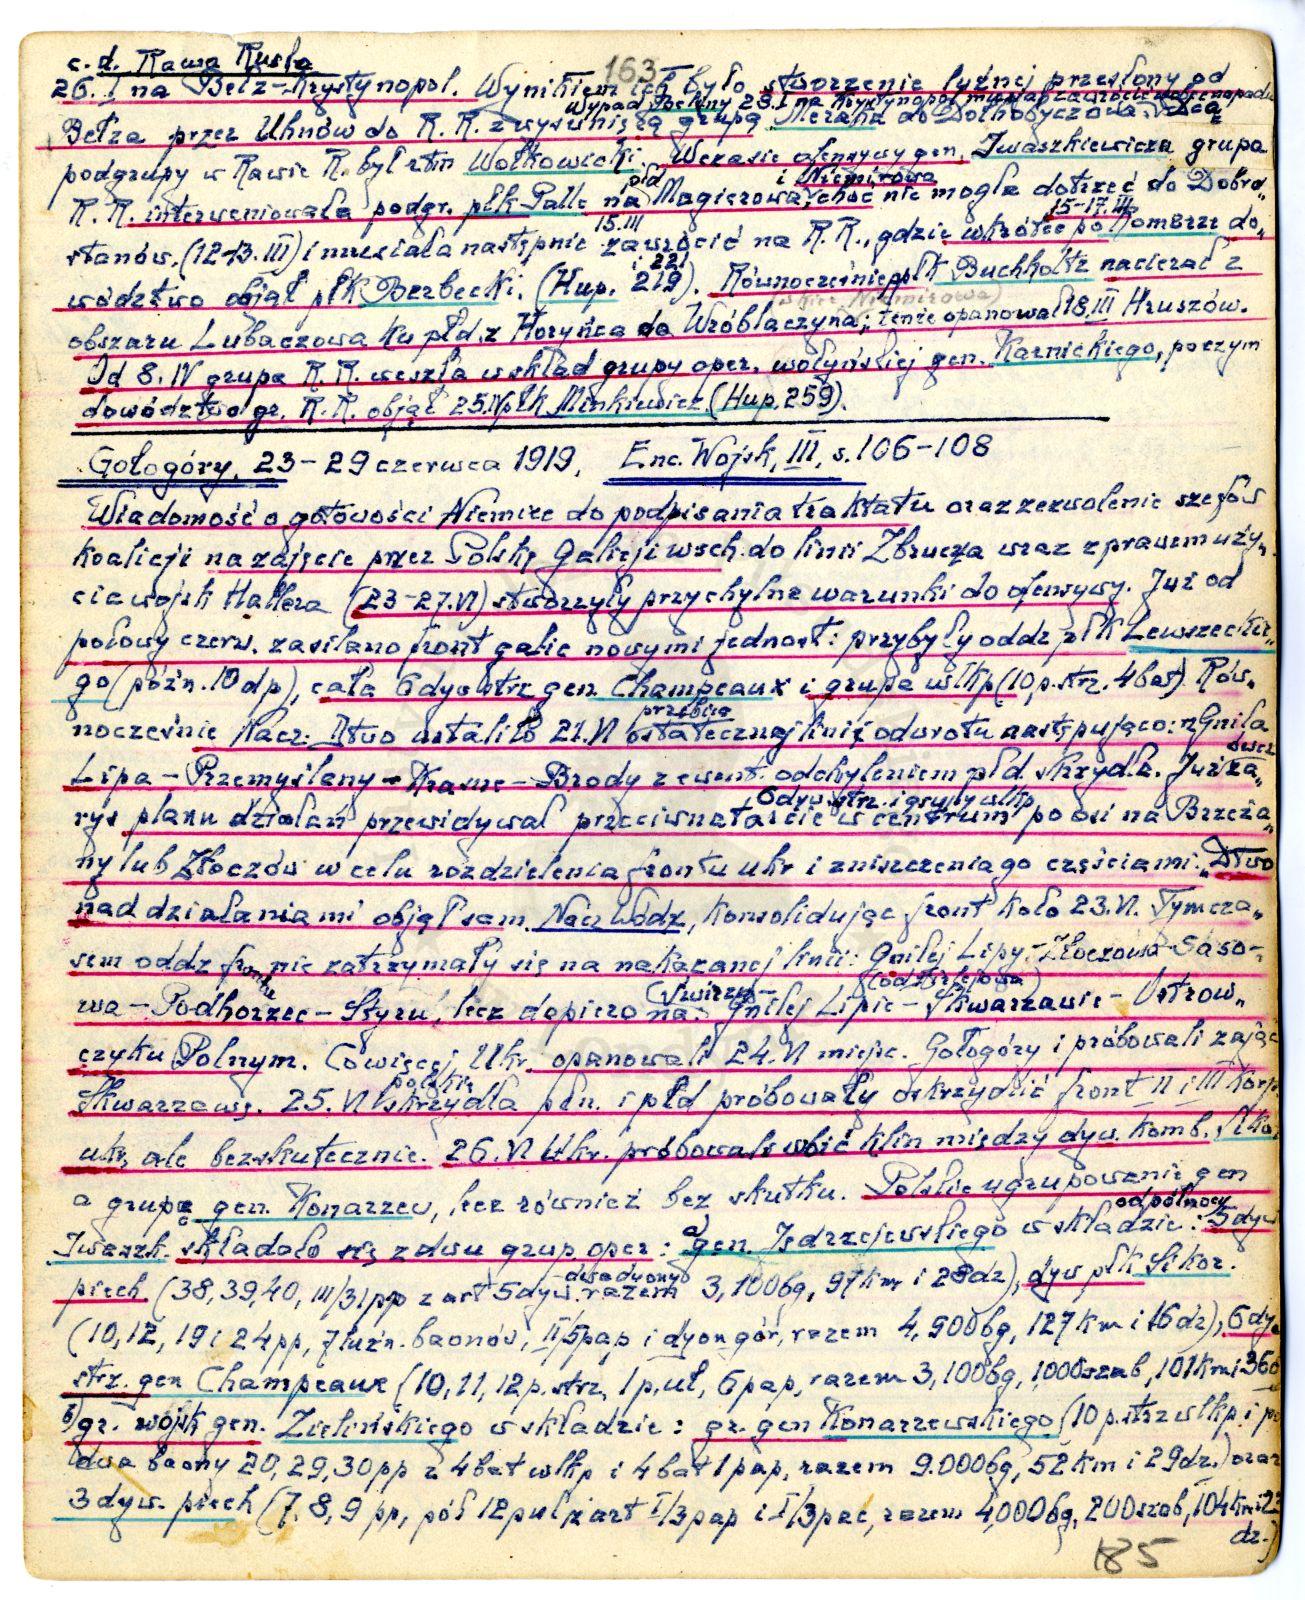 c.d. Rawa Ruska
163
26.I na Bełz-Krystynopol. Wynikiem ich było stworzenie luźnej przesłony od
wypad Bełżny 23.I na Krystynopol musiał zawrócić
Bełza przez Uhnów do R.R. z wysuniętą grupą Meraka do Dołhobyczowa. Dcą
podgrupy w Rawie R. był rtm Wołkowicki. W czasie ofensywy gen. Iwaszkiewicza grupa
płd i Niemirowa
R.R. interweniowała podgr. płk Palle na Magierowa, choć nie mogła dotrzeć do Dobro„
15.III 15-17.III
stanów. (12-13.III) i musiała następnie zawrócić na R.R., gdzie wkrótce po Kombrze do„
i 221
wództwo objął płk Berbecki. (Hup. 219). Równocześnie płk Buchholtz nacierał z
(wkier. Niemirowa)
obszaru Lubaczowa ku płd. z Horyńca do Wróblaczyna; tenże opanował 18.III Hruszów.
Od 8.IV grupa R.R. weszła w skład grupy oper. wołyńskiej gen. Karnickiego, poczym
dowództwo gr. R.R. objął 25.IV płk Minkiewicz (Hup. 259).
Gołogóry, 23-29 czerwca 1919, Enc. Wojsk, III, s. 106-108
Wiadomość o gotowości Niemiec do podpisania traktatu oraz zezwolenie szefów
koalicji na zajęcie przez Polskę Galicji wsch. do linii Zbrucza wraz z prawem uży„
cia wojsk Hallera (23-27.VI) stworzyły przychylne warunki do ofensywy. Już od
połowy czerw. zasilano front galic nowymi jednost: przybyły oddz płk Lewszeckie„
go (późn. 10 dp), cała 6 dyw strz gen. Champeaux i grupa wlkp (10.p.strz. 4 bat). Rów„
przebieg
nocześnie Nacz. Dtwo ustaliło 21.VI ostatecznej linię odwrotu następująco: Gniła
Lipa - Przemyślany - Krasne - Brody z ewent. odchyleniem płd. skrzydła. Już za„
6 dyw strz. i grupy wlkp
rys planu działań przewidywał przeciwnatarcie w centrum po osi na Brzeża„
ny lub Złoczów w celu rozdzielenia frontu ukr i zniszczenia go częściami. Dtwo
nad działaniami objął sam Nacz Wódz, konsolidując front koło 23.VI. Tymcza„
sem oddz frontu nie zatrzymały się na nakazanej linii: Gniłej Lipy - Złoczowa - Saso-
(Świrzu - (od Strejowa)
wa - Podhorzec - Styru, lecz dopiero na: Gniłej Lipie - Skwarzawie - Ostrow„
czyku Polnym. Co więcej, Ukr. opanowali 24.VI miejsc. Gołogóry i próbowali zająć
polskie
Skwarzawę. 25.VI skrzydła płn. i płd próbowały oskrzydlić front II i III Korp.
ukr, ale bezskutecznie. 26.VI Ukr. próbowali wbić klin między dyw. komb. Siko
a grupę gen. Konarzew, lecz również bez skutku. Polskie ugrupowanie gen
od północy
Iwaszk. składało się z dwu grup oper: a) gen. Jędrzejewskiego w składzie: 5 dyw
dwa dyony
piech (38, 39, 40, III/31 pp z art 5 dyw. razem 3,100 bg, 97 km i 28 dz), dyw płk Sikor.
(10, 12, 19 i 24 pp, 7 luźn. baonów, II/5 pap i dyon gór, razem 4,900 bg, 127 km i 16 dz), 6 dyw.
strz. gen Champeaux (10, 11, 12 p. strz, 1 p. uł, 6 pap, razem 3,100 bg, 1000 szab, 101 km i 36 d
b) gr. wojsk gen. Zielińskiego w składzie: gr. gen Konarzewskiego (10 p. strz wlkp i po
dwa baony 20, 29, 30 pp z 4 bat wlkp i 4 bat 1 pap, razem 9.000 bg, 52 km i 29 dz.) oraz
3 dyw. piech (7, 8, 9 pp, pół 12 puł z art I/3 pap i I/3 pac, razem 4,000 bg, 200 szab, 104 km i 23
dz.)
185